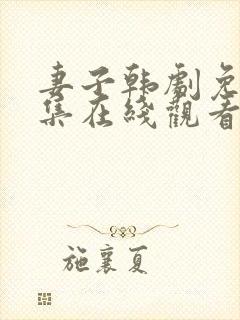 妻子韩劇免
集在綫觀看
施襄夏